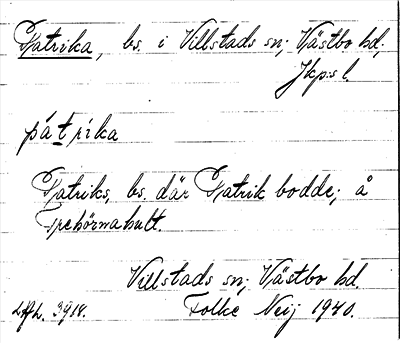 Patrika, bs. i Villstads sn; Västbo hd,
Jkp:s l.
pátrika
Patriks, bs. där Patrik bodde; å
Trehörnahult.
Villstads sn; Västbo hd.
Folke Neij 1940.